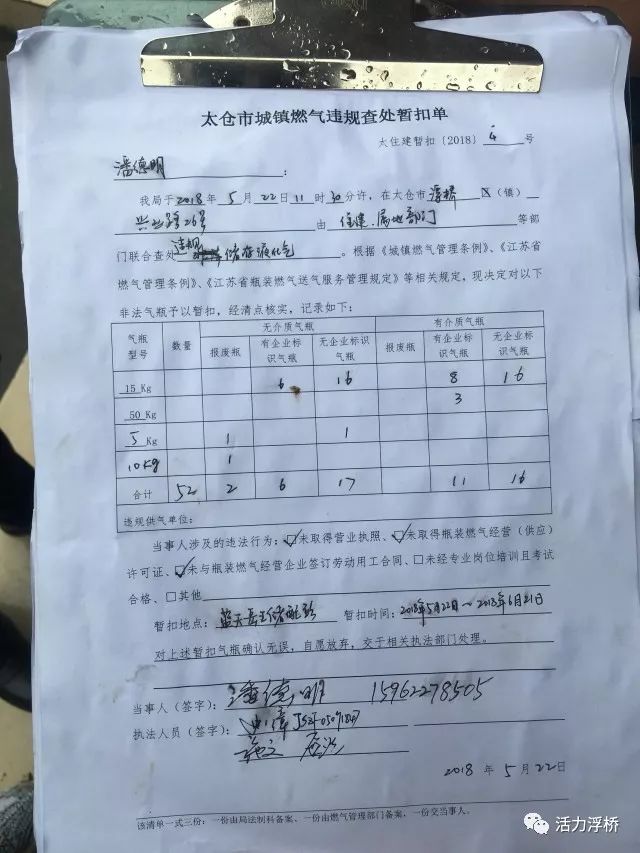 太仓市城镇燃气违规查处暂扣单
太住建暂扣〔2018〕 4 号
潘德明 :
我局于2018年 5 月 22 日 11 时 30 分许，在太仓市 浮桥 区（镇）
兴业路26号 由 住建、属地部门 等部
门联合查处 违规储存液化气 。根据《城镇燃气管理条例》、《江苏省
燃气管理条例》、《江苏省瓶装燃气送气服务管理规定》等相关规定，现决定对以下
非法气瓶予以暂扣，经清点核实，记录如下：
气瓶型号 数量 无介质气瓶 有介质气瓶
报废瓶 有企业标识气瓶 无企业标识气瓶 报废瓶 有企业标识气瓶 无企业标识气瓶
15 Kg 6 16 8 16
50 Kg 3
5 Kg 1 1
10Kg 1
合计 52 2 6 17 11 16
违规供气单位：
当事人涉及的违法行为：☑未取得营业执照、☑未取得瓶装燃气经营（供应）
许可证、☑未与瓶装燃气经营企业签订劳动用工合同、□未经专业岗位培训且考试
合格、□其他
暂扣地点： 暂扣时间：2018年5月22日～2018年6月21日
对上述暂扣气瓶确认无误，自愿放弃，交于相关执法部门处理。
当事人（签字）： 潘德明 15962278505
执法人员（签字）：
2018 年 5 月 22 日
该清单一式三份：一份由局法制科备案、一份由燃气管理部门备案，一份交当事人。
活力浮桥